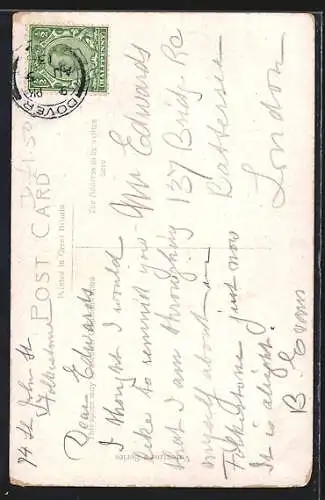 POST CARD
Printed in Great Britain
The Address to be written
here
HALFPENNY
DOVER
9 PM
1.50
94 St John St
Folkestone
Dear Edwards
I thought I would
like to remind you
that I am throughing
myself about in
Folkestone just now
It is alright.
B Evans
Mr Edwards
137 Bridge Rd
Battersea
London
Series